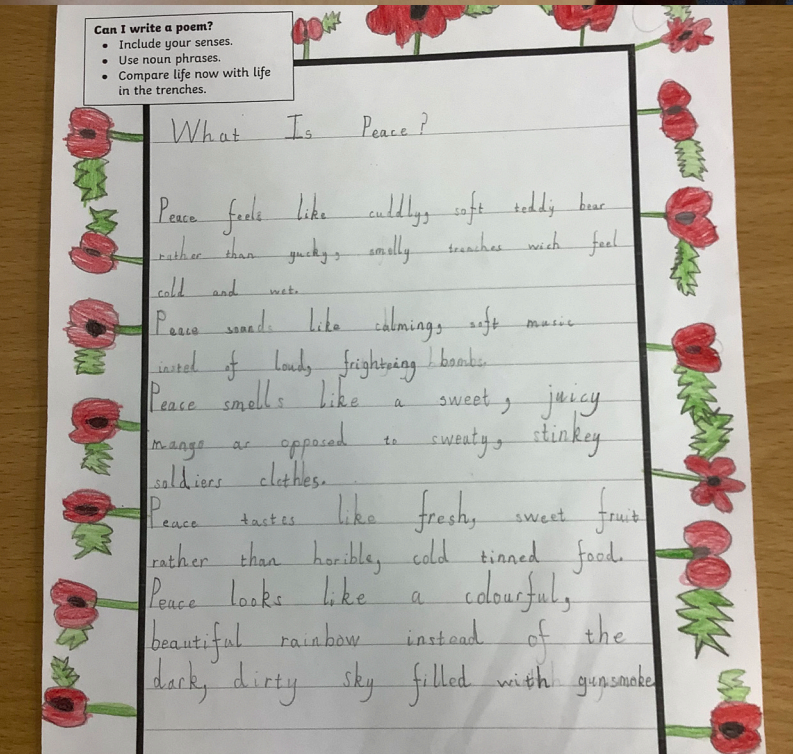 Can I write a poem?
• Include your senses.
• Use noun phrases.
• Compare life now with life
in the trenches.
What Is Peace?
Peace feels like cuddly, soft teddy bear
rather than yucky, smelly trenches wich feel
cold and wet.
Peace sounds like calming, soft music
insted of loud, frighteing bombs.
Peace smells like a sweet, juicy
mango as opposed to sweaty, stinkey
soldiers clothes.
Peace tastes like fresh, sweet fruit
rather than horible, cold tinned food.
Peace looks like a colourful,
beautiful rainbow instead of the
dark, dirty sky filled with gunsmoke